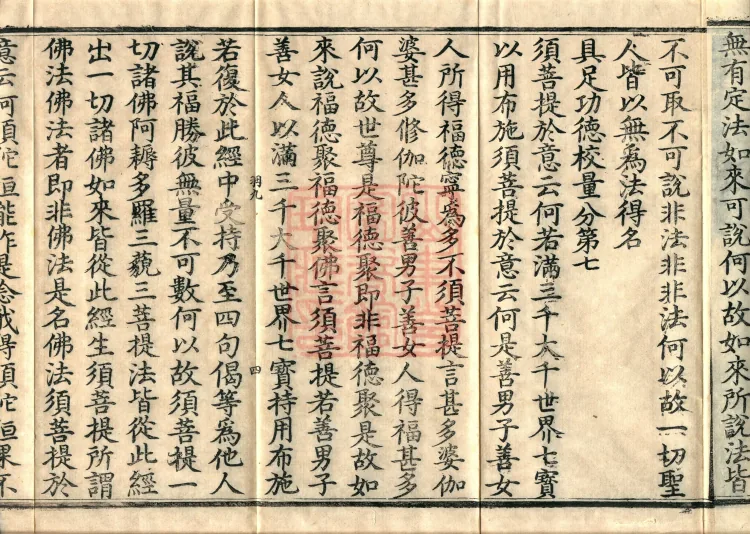 無有定法如來可說何以故如來所說法皆
不可取不可說非法非非法何以故一切聖
人皆以無爲法得名
具足功德校量分第七
須菩提於意云何若滿三千大千世界七寳
以用布施須菩提於意云何是善男子善女
人所得福德寧爲多不須菩提言甚多婆伽
婆甚多修伽陀彼善男子善女人得福甚多
何以故世尊是福德聚即非福德聚是故如
來說福德聚福德聚佛言須菩提若善男子
善女人以滿三千大千世界七寳持用布施
羽九 四
若復於此經中受持乃至四句偈等爲他人
說其福勝彼無量不可數何以故須菩提一
切諸佛阿耨多羅三藐三菩提法皆從此經
出一切諸佛如來皆從此經生須菩提所謂
佛法佛法者即非佛法是名佛法須菩提於
意云何須陀洹能作是念我得須陀洹果不